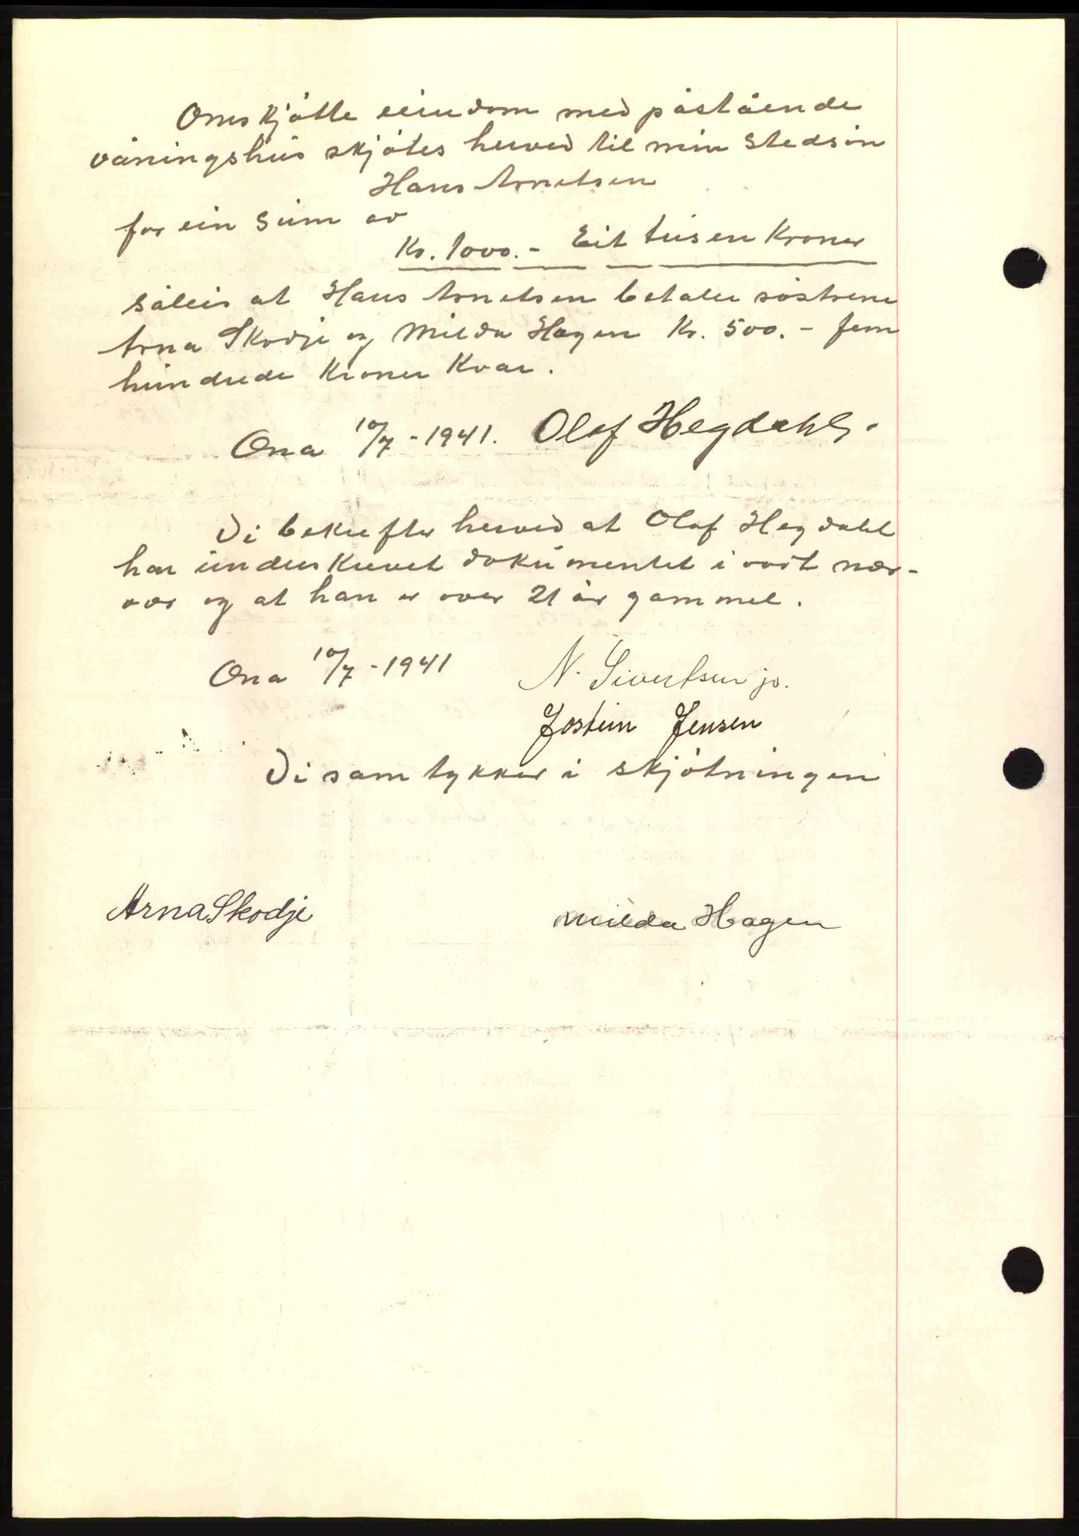 Omskjötte eiendom med påstående
våningshus skjötes herved til min stedsön
Hans Arnetsen
for ein sum av
Kr. 1000.- Eit tusen Kroner
såleis at Hans Arnetsen betaler söstrene
Arna Skodje og Milda Hagen Kr. 500.- fem
hundrede Kroner Kvar.
Ona 10/7 - 1941. Olaf Hegdahl.
Vi bekrefter herved at Olaf Hegdahl
har underskrevet dokumentet i vort nær-
vær og at han er over 21 år gammel.
Ona 10/7 - 1941 N. Sivertsen jr.
Jostein Jensen
Vi samtykker i skjötningen
Arna Skodje Milda Hagen